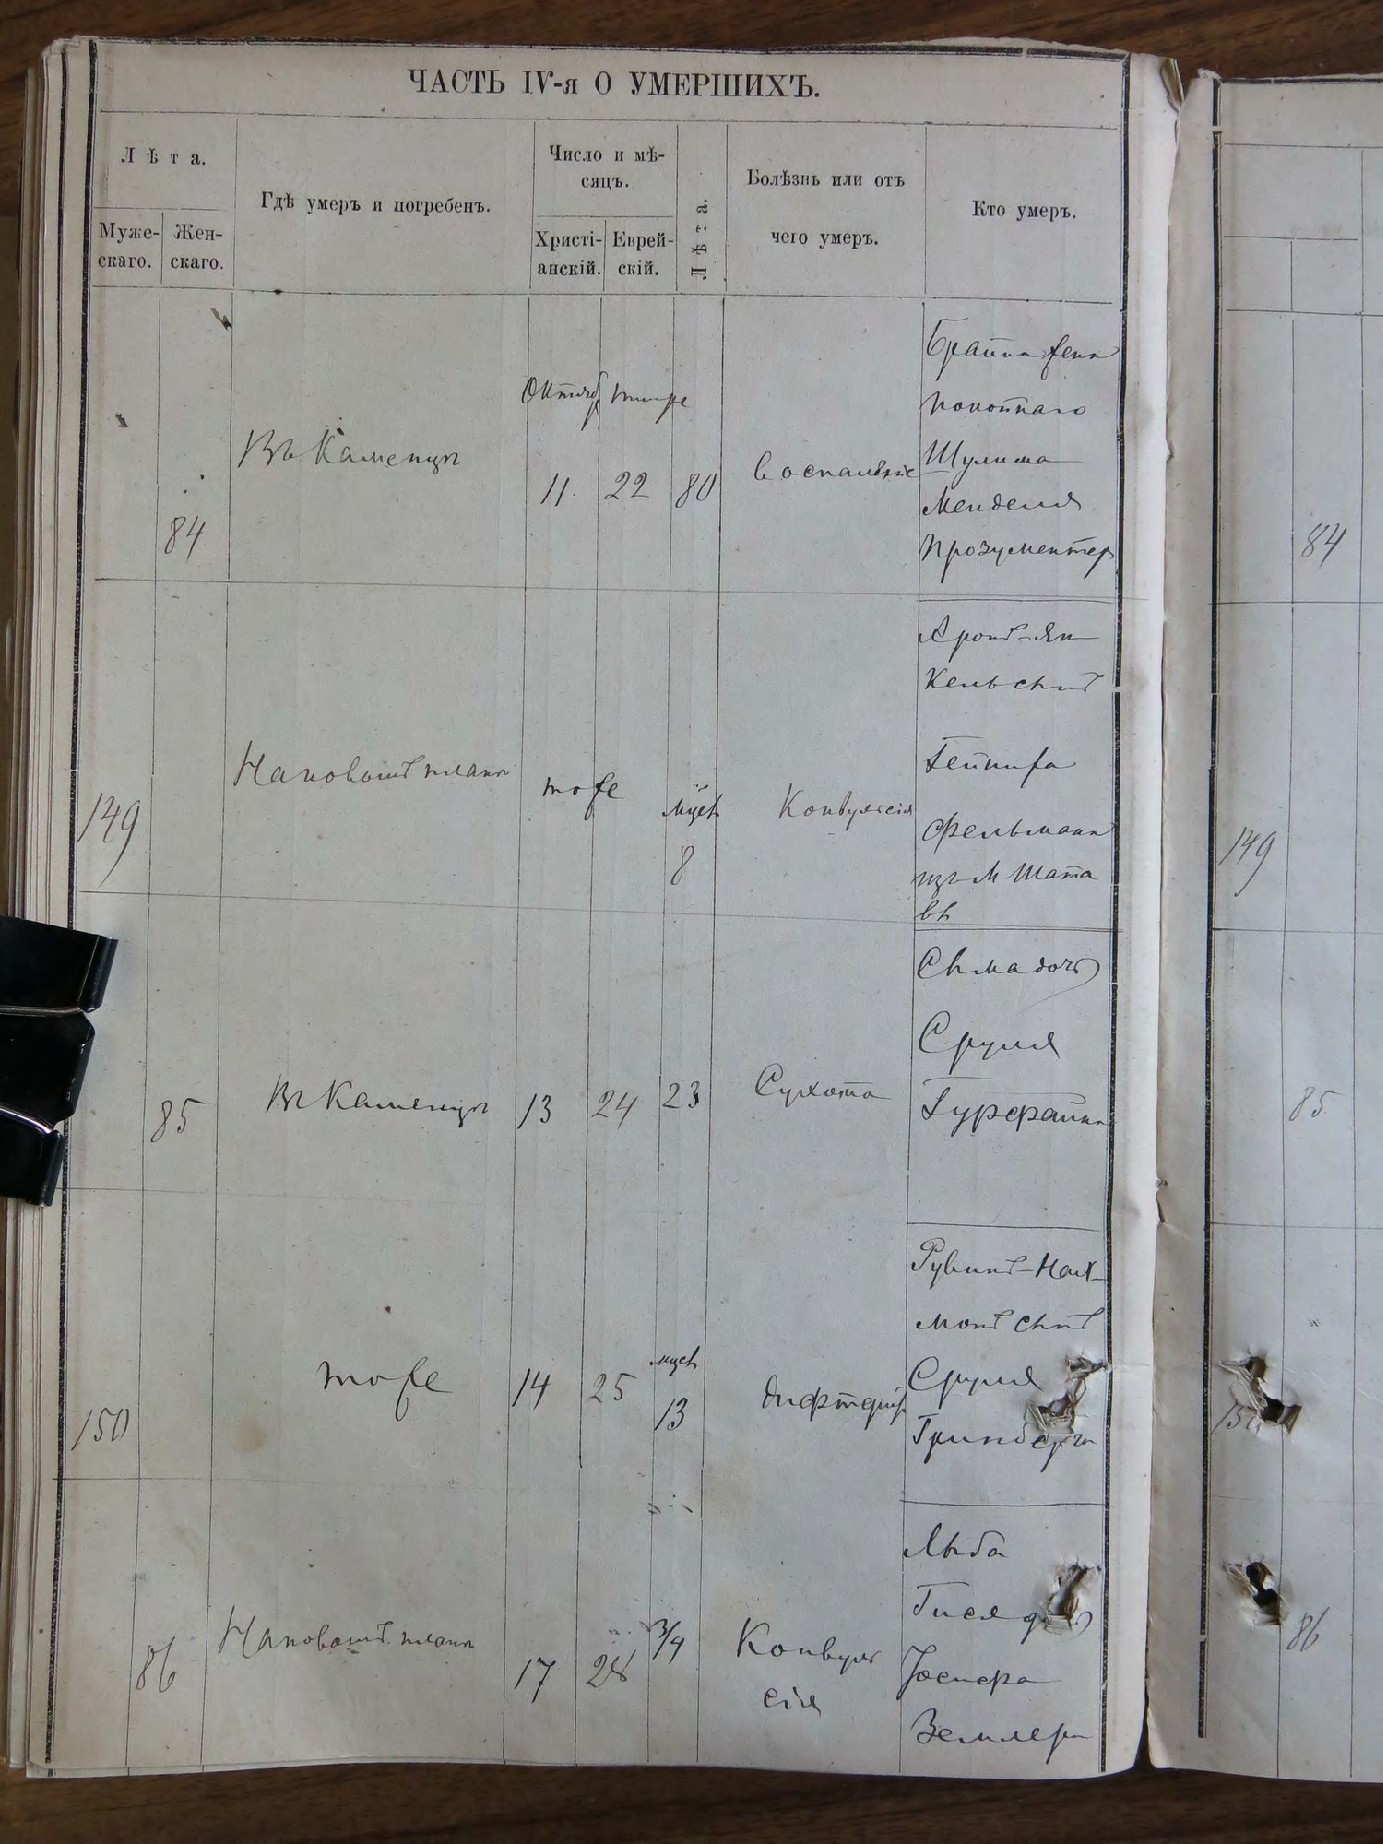 ЧАСТЬ IV-я О УМЕРШИХЪ.
Лѣта.
Муже-
скаго.
Жен-
скаго.
Гдѣ умеръ и погребенъ.
Число и мѣ-
сяцъ.
Христі-
анскій.
Еврей-
скій.
Лѣта.
Болѣзнь или отъ
чего умеръ.
Кто умеръ.
84
Въ Каменцѣ
Октяб
11
22
80
Воспаленіе
Брайна жена
покойнаго
Шулима
Менделя
Прозументер
84
149
тоже
мцев
8
Конвулсія
Аронъ-Ян
кель сынъ
Гейниха
Фельмана
изъ м Шата
вы
149
85
Въ Каменцѣ
13
24
23
Сухота
Сыма дочь
Сруля
Гурфайна
85
150
тоже
14
25
мцев
13
дифтерит
Рувинъ-Нах-
монъ сынъ
Сруля
Гринберга
86
17
28
3/4
Конвул
сія
Лыба
Гися
Иосифа
Землера
86